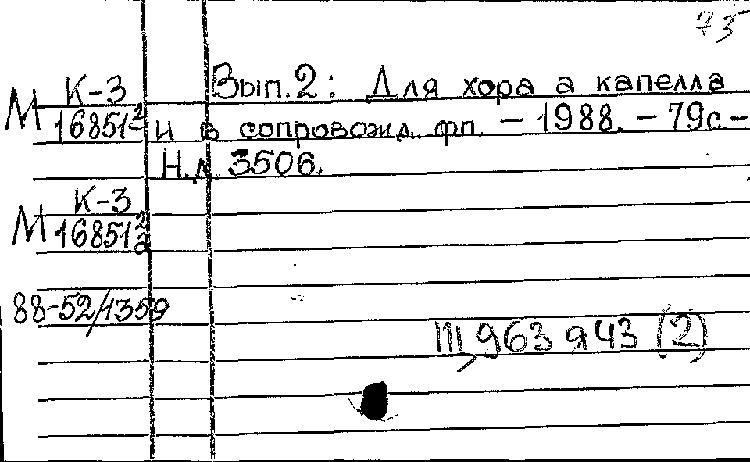 75
К-3 Вып. 2: Для хора а капелла
М 16851 2 и в сопровожд. фп. – 1988. – 79с.–
Н.д. 3506.
К-3
М 16851 2 а
88-52/1359
Ш, 963 943 (2)